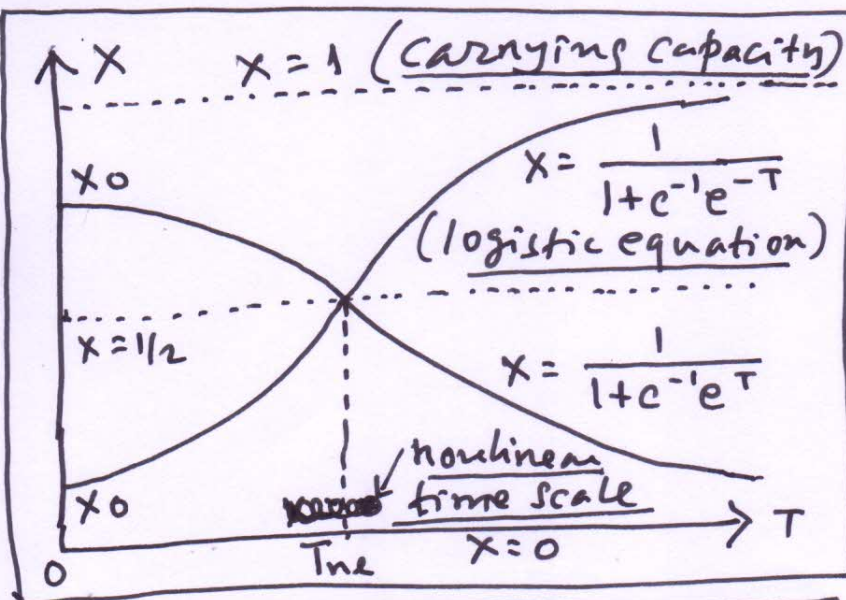 X
X = 1 (carrying capacity)
X0
X = 1/(1+c⁻¹e⁻ᵀ)
(logistic equation)
X = 1/2
X = 1/(1+c⁻¹eᵀ)
nonlinear
time scale
X0
0
Tnl
X=0
T